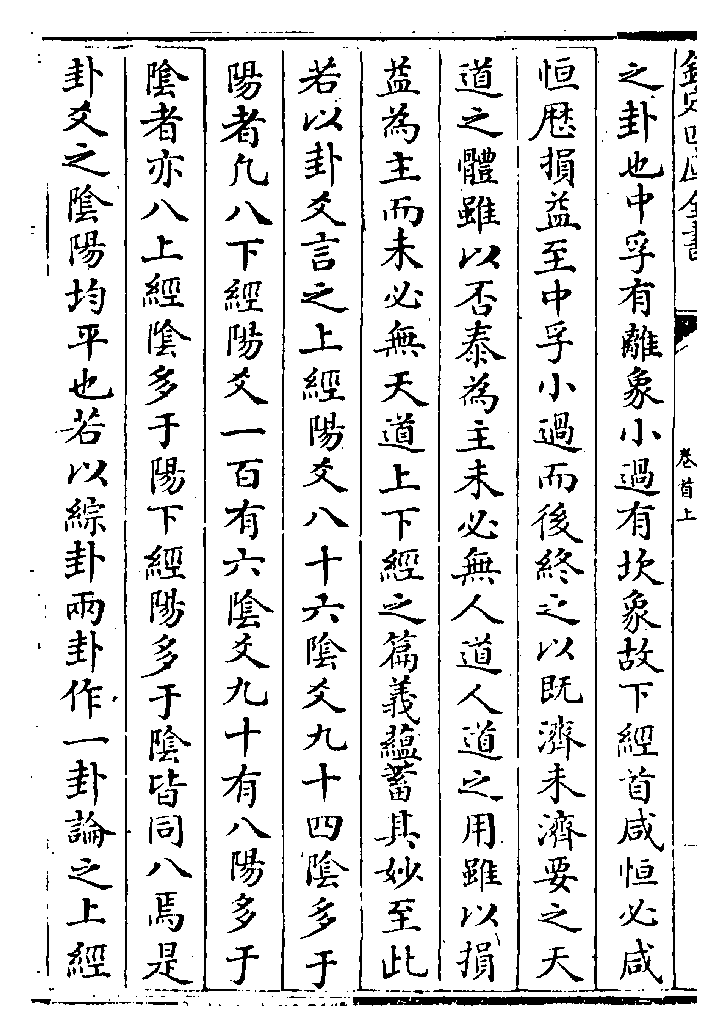 欽定四庫全書
卷首上
之卦也中孚有離象小過有坎象故下經首咸恒必咸
恒歴損益至中孚小過而後終之以既濟未濟要之天
道之體雖以否泰為主未必無人道人道之用雖以損
益為主而未必無天道上下經之篇義蘊蓄其妙至此
若以卦爻言之上經陽爻八十六陰爻九十四陰多于
陽者凡八下經陽爻一百有六陰爻九十有八陽多于
陰者亦八上經陰多于陽下經陽多于陰皆同八焉是
卦爻之陰陽均平也若以綜卦兩卦作一卦論之上經